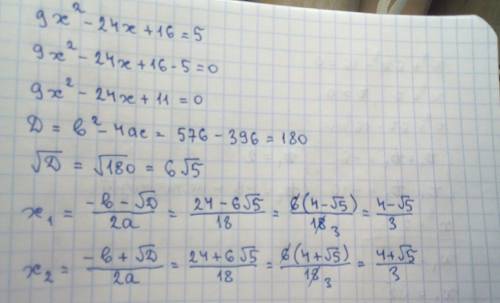 9x² - 24x + 16 = 5
9x² - 24x + 16 - 5 = 0
9x² - 24x + 11 = 0
D = b² - 4ac = 576 - 396 = 180
√D = √180 = 6√5
x₁ = (-b - √D)/(2a) = (24 - 6√5)/18 = 6(4 - √5)/18 3 = (4 - √5)/3
x₂ = (-b + √D)/(2a) = (24 + 6√5)/18 = 6(4 + √5)/18 3 = (4 + √5)/3